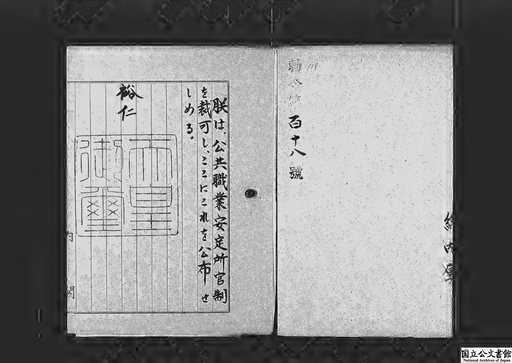 勅令第百十八號
朕は、公共職業安定所官制
を裁可し、ここにこれを公布せ
しめる。
裕仁
天皇
御璽
内閣
国立公文書館
National Archives of Japan